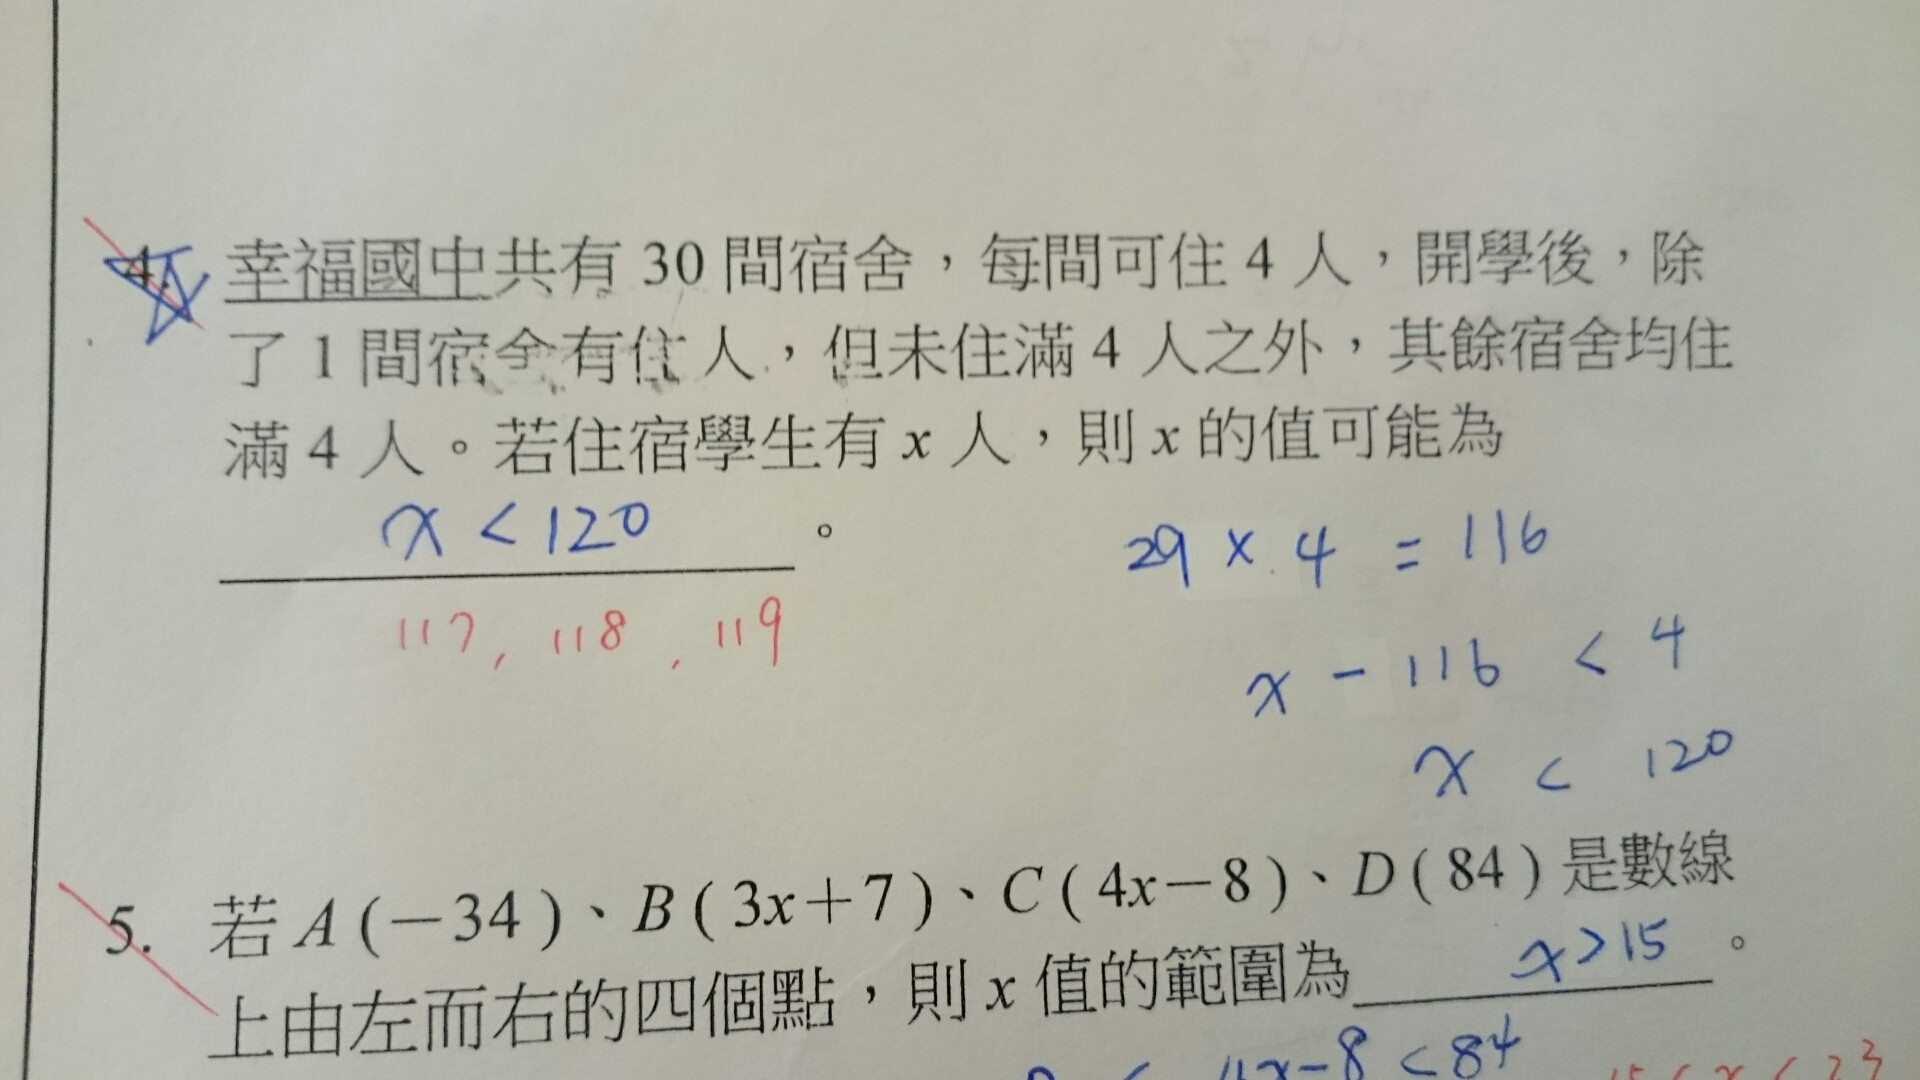 4. 幸福國中共有 30 間宿舍，每間可住 4 人，開學後，除
了 1 間宿舍有住人，但未住滿 4 人之外，其餘宿舍均住
滿 4 人。若住宿學生有 x 人，則 x 的值可能為
x < 120 。
117, 118, 119
29 × 4 = 116
x - 116 < 4
x < 120
5. 若 A(-34)、B(3x+7)、C(4x-8)、D(84) 是數線
上由左而右的四個點，則 x 值的範圍為 x>15 。
4x-8 < 84
15 < x < 23